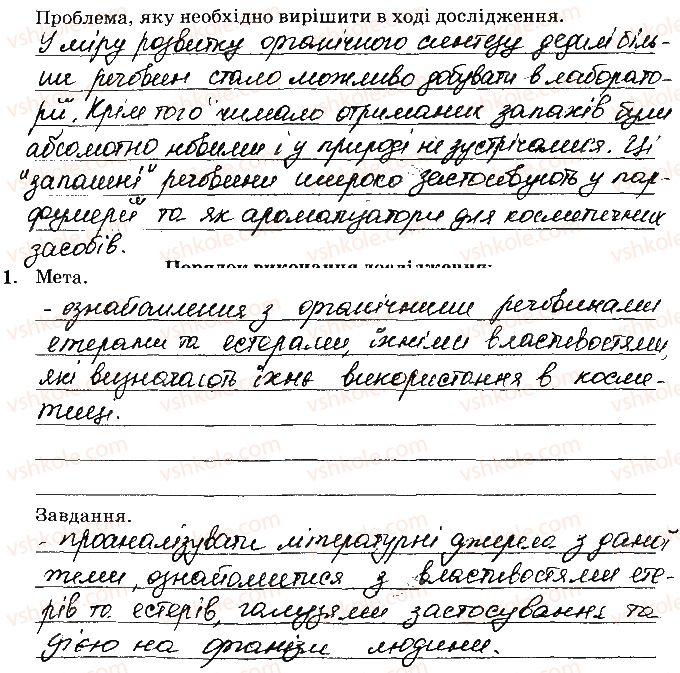 Проблема, яку необхідно вирішити в ході дослідження.
У міру розвитку органічного синтезу дедалі біль-
ше речовин стало можливо добувати в лаборато-
рії. Крім того чимало отриманих запахів були
абсолютно новими і у природі не зустрічалися. Ці
"запашні" речовини широко застосовують у пар-
фумерії та як ароматизатори для косметичних
засобів.
Порядок виконання дослідження:
1. Мета.
- ознайомлення з органічними речовинами
етерами та естерами, їхніми властивостями,
які визначають їхнє використання в косме-
тиці.
Завдання.
- проаналізувати літературні джерела з даної
теми, ознайомитися з властивостями ете-
рів та естерів, галузями застосування та
дією на організм людини.